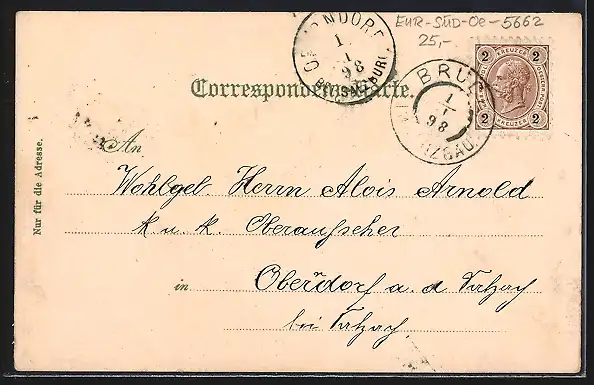 EUR-SÜD-Oe-5662
25,-
OBERNDORF
1
1
98
BEI SALZBURG
BRUCK
1
1
98
PINZGAU
2 KREUZER 2
2 KREUZER 2
Correspondenz-Karte.
Nur für die Adresse.
An
Wohlgeb Herrn Alois Arnold
k u. k. Oberaufseher
in Oberdorf a. d. Salzach
bei Salzach